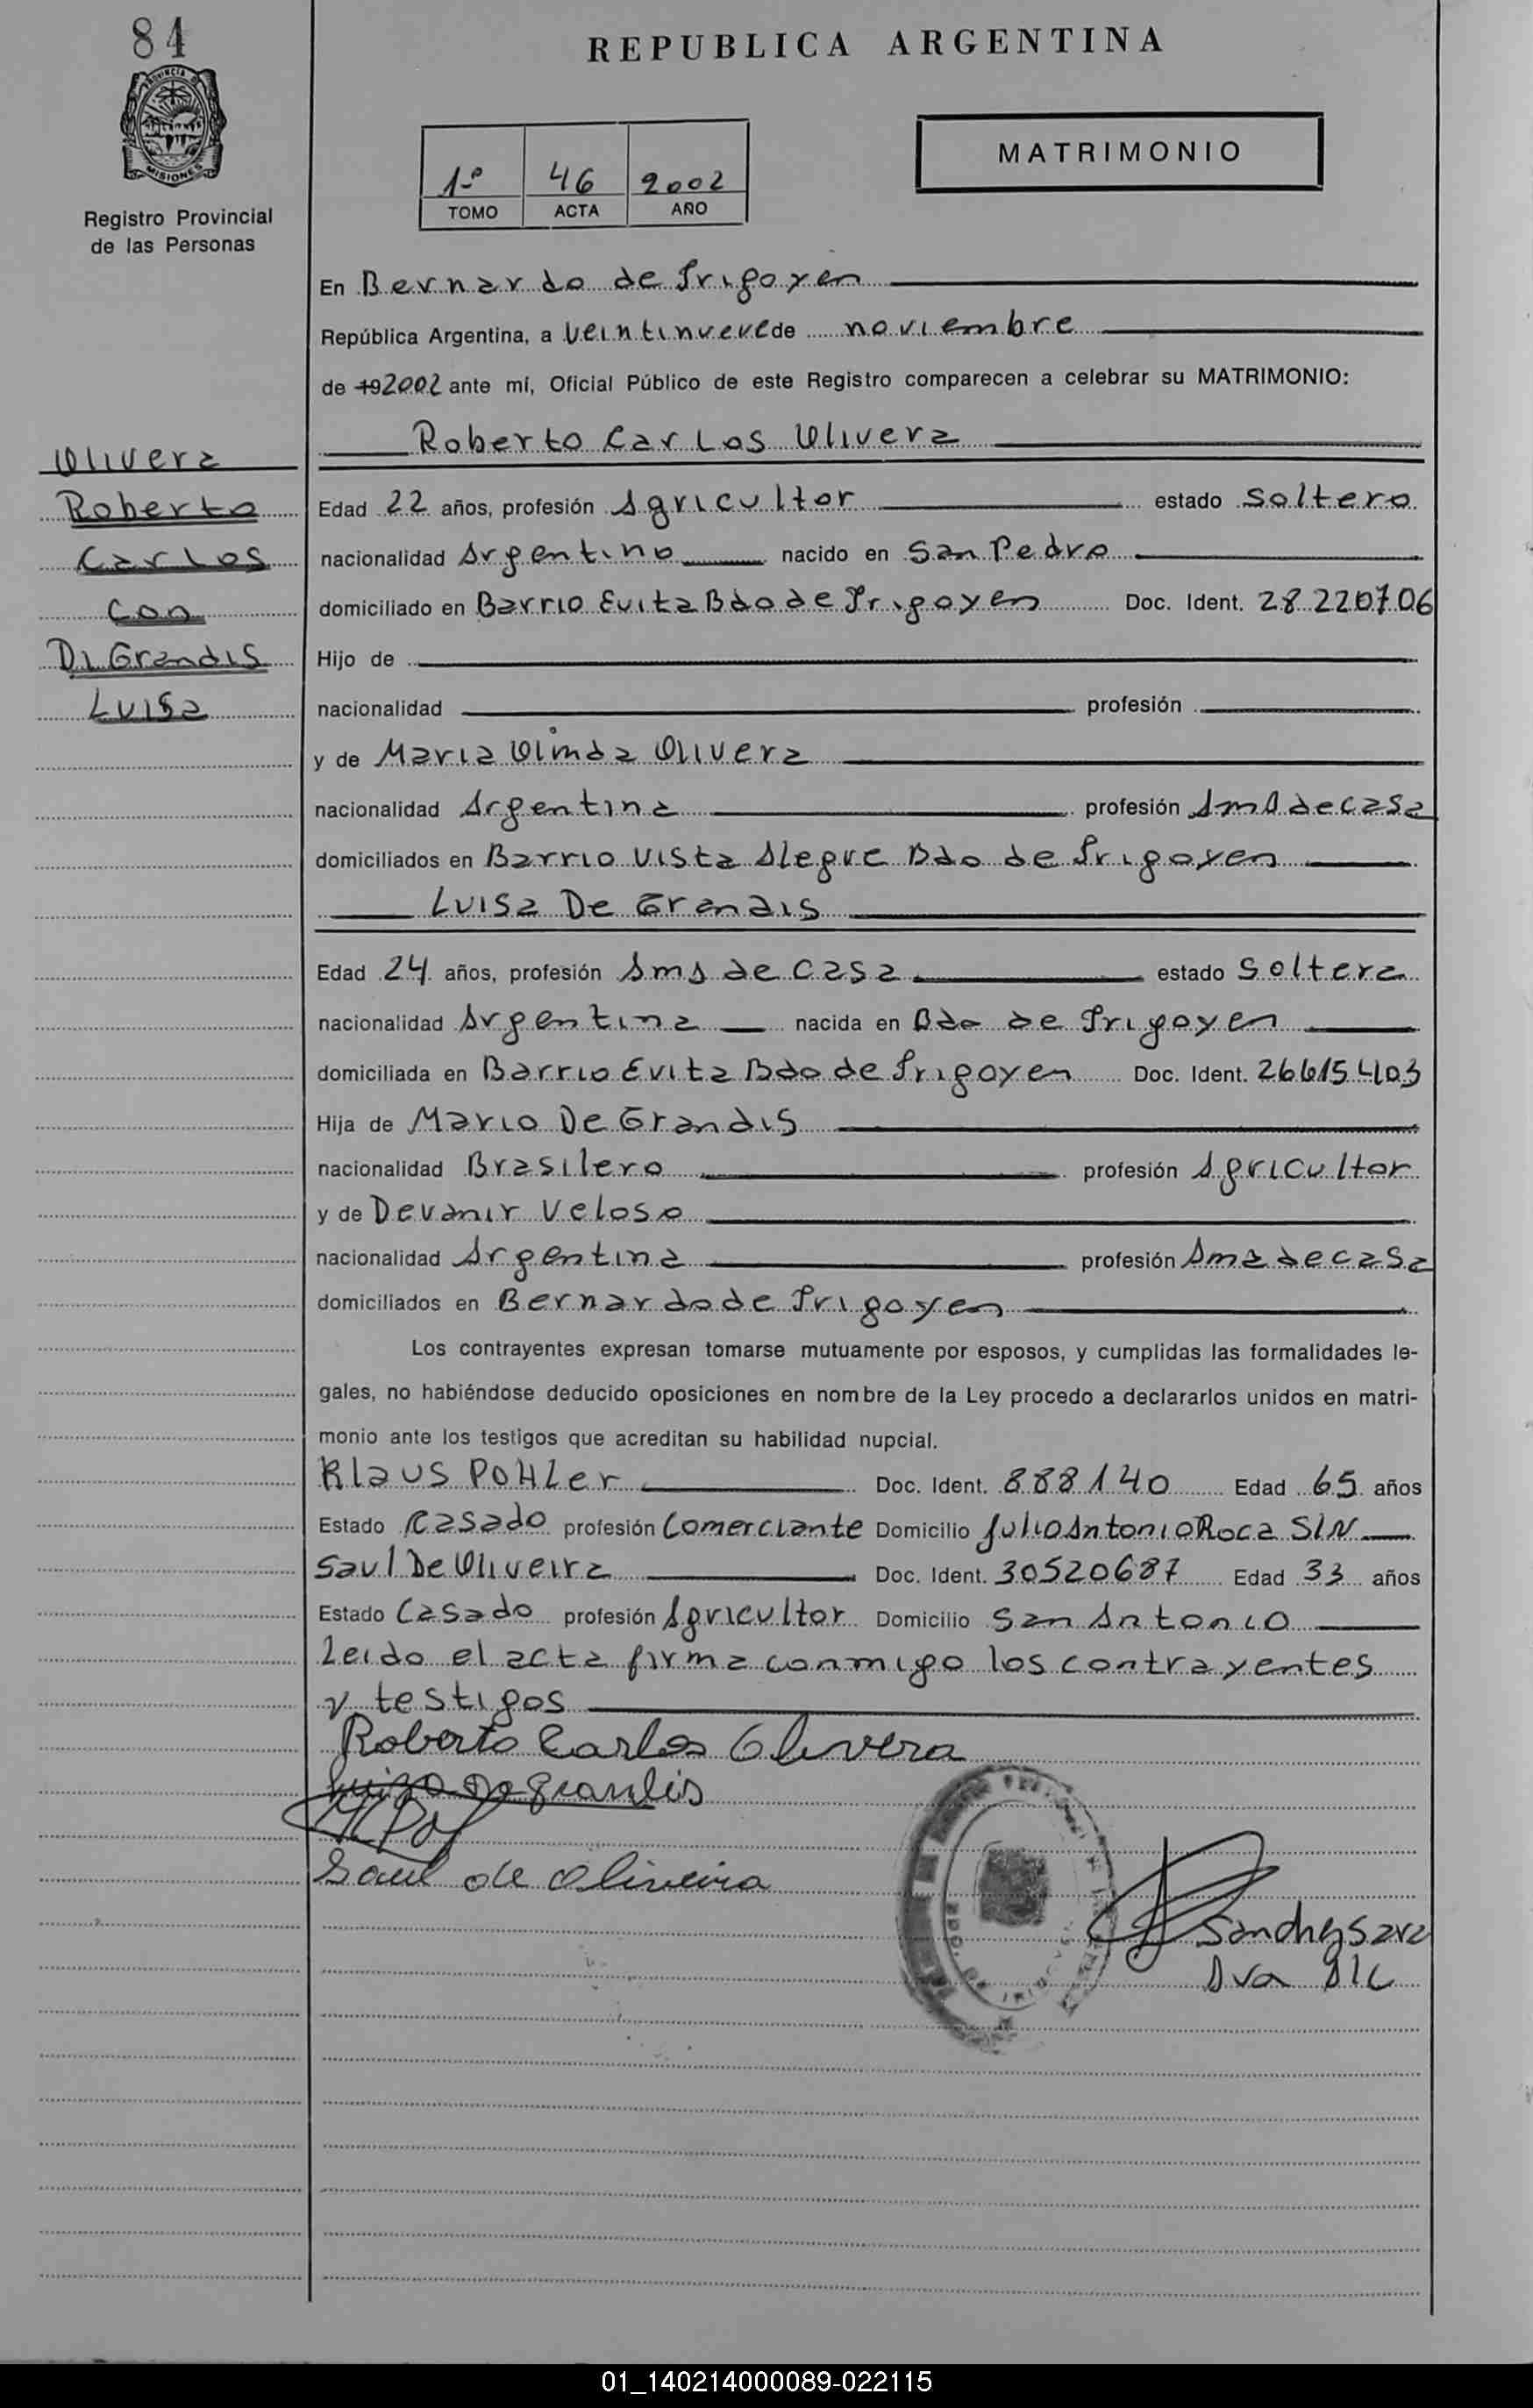 84
REPUBLICA ARGENTINA
PROVINCIA DE
MISIONES
Registro Provincial
de las Personas
1º 46 2002
TOMO ACTA AÑO
MATRIMONIO
En Bernardo de Irigoyen
República Argentina, a veintinueve de noviembre
de 192002 ante mí, Oficial Público de este Registro comparecen a celebrar su MATRIMONIO:
Roberto Carlos Olivera
Olivera
Roberto
Carlos
con
Di Grandis
Luisa
Edad 22 años, profesión Agricultor estado Soltero
nacionalidad Argentino nacido en San Pedro
domiciliado en Barrio Evita Bdo de Irigoyen Doc. Ident. 28 220706
Hijo de
nacionalidad profesión
y de Maria Olinda Olivera
nacionalidad Argentina profesión Ama de casa
domiciliados en Barrio Vista Alegre Bdo de Irigoyen
Luisa De Grandis
Edad 24 años, profesión Ama de casa estado Soltera
nacionalidad Argentina nacida en Bdo de Irigoyen
domiciliada en Barrio Evita Bdo de Irigoyen Doc. Ident. 26615403
Hija de Mario De Grandis
nacionalidad Brasilero profesión Agricultor
y de Devanir Veloso
nacionalidad Argentina profesión Ama de casa
domiciliados en Bernardo de Irigoyen
Los contrayentes expresan tomarse mutuamente por esposos, y cumplidas las formalidades le-
gales, no habiéndose deducido oposiciones en nombre de la Ley procedo a declararlos unidos en matri-
monio ante los testigos que acreditan su habilidad nupcial.
Klaus Pohler Doc. Ident. 888140 Edad 65 años
Estado Casado profesión Comerciante Domicilio Julio Antonio Roca S/N
Saul De Oliveira Doc. Ident. 30520687 Edad 33 años
Estado Casado profesión Agricultor Domicilio San Antonio
Leido el acta firma conmigo los contrayentes
y testigos
Roberto Carlos Olivera
Luiza de grandis
Saul de Oliveira
Sanchez Sara
01_140214000089-022115